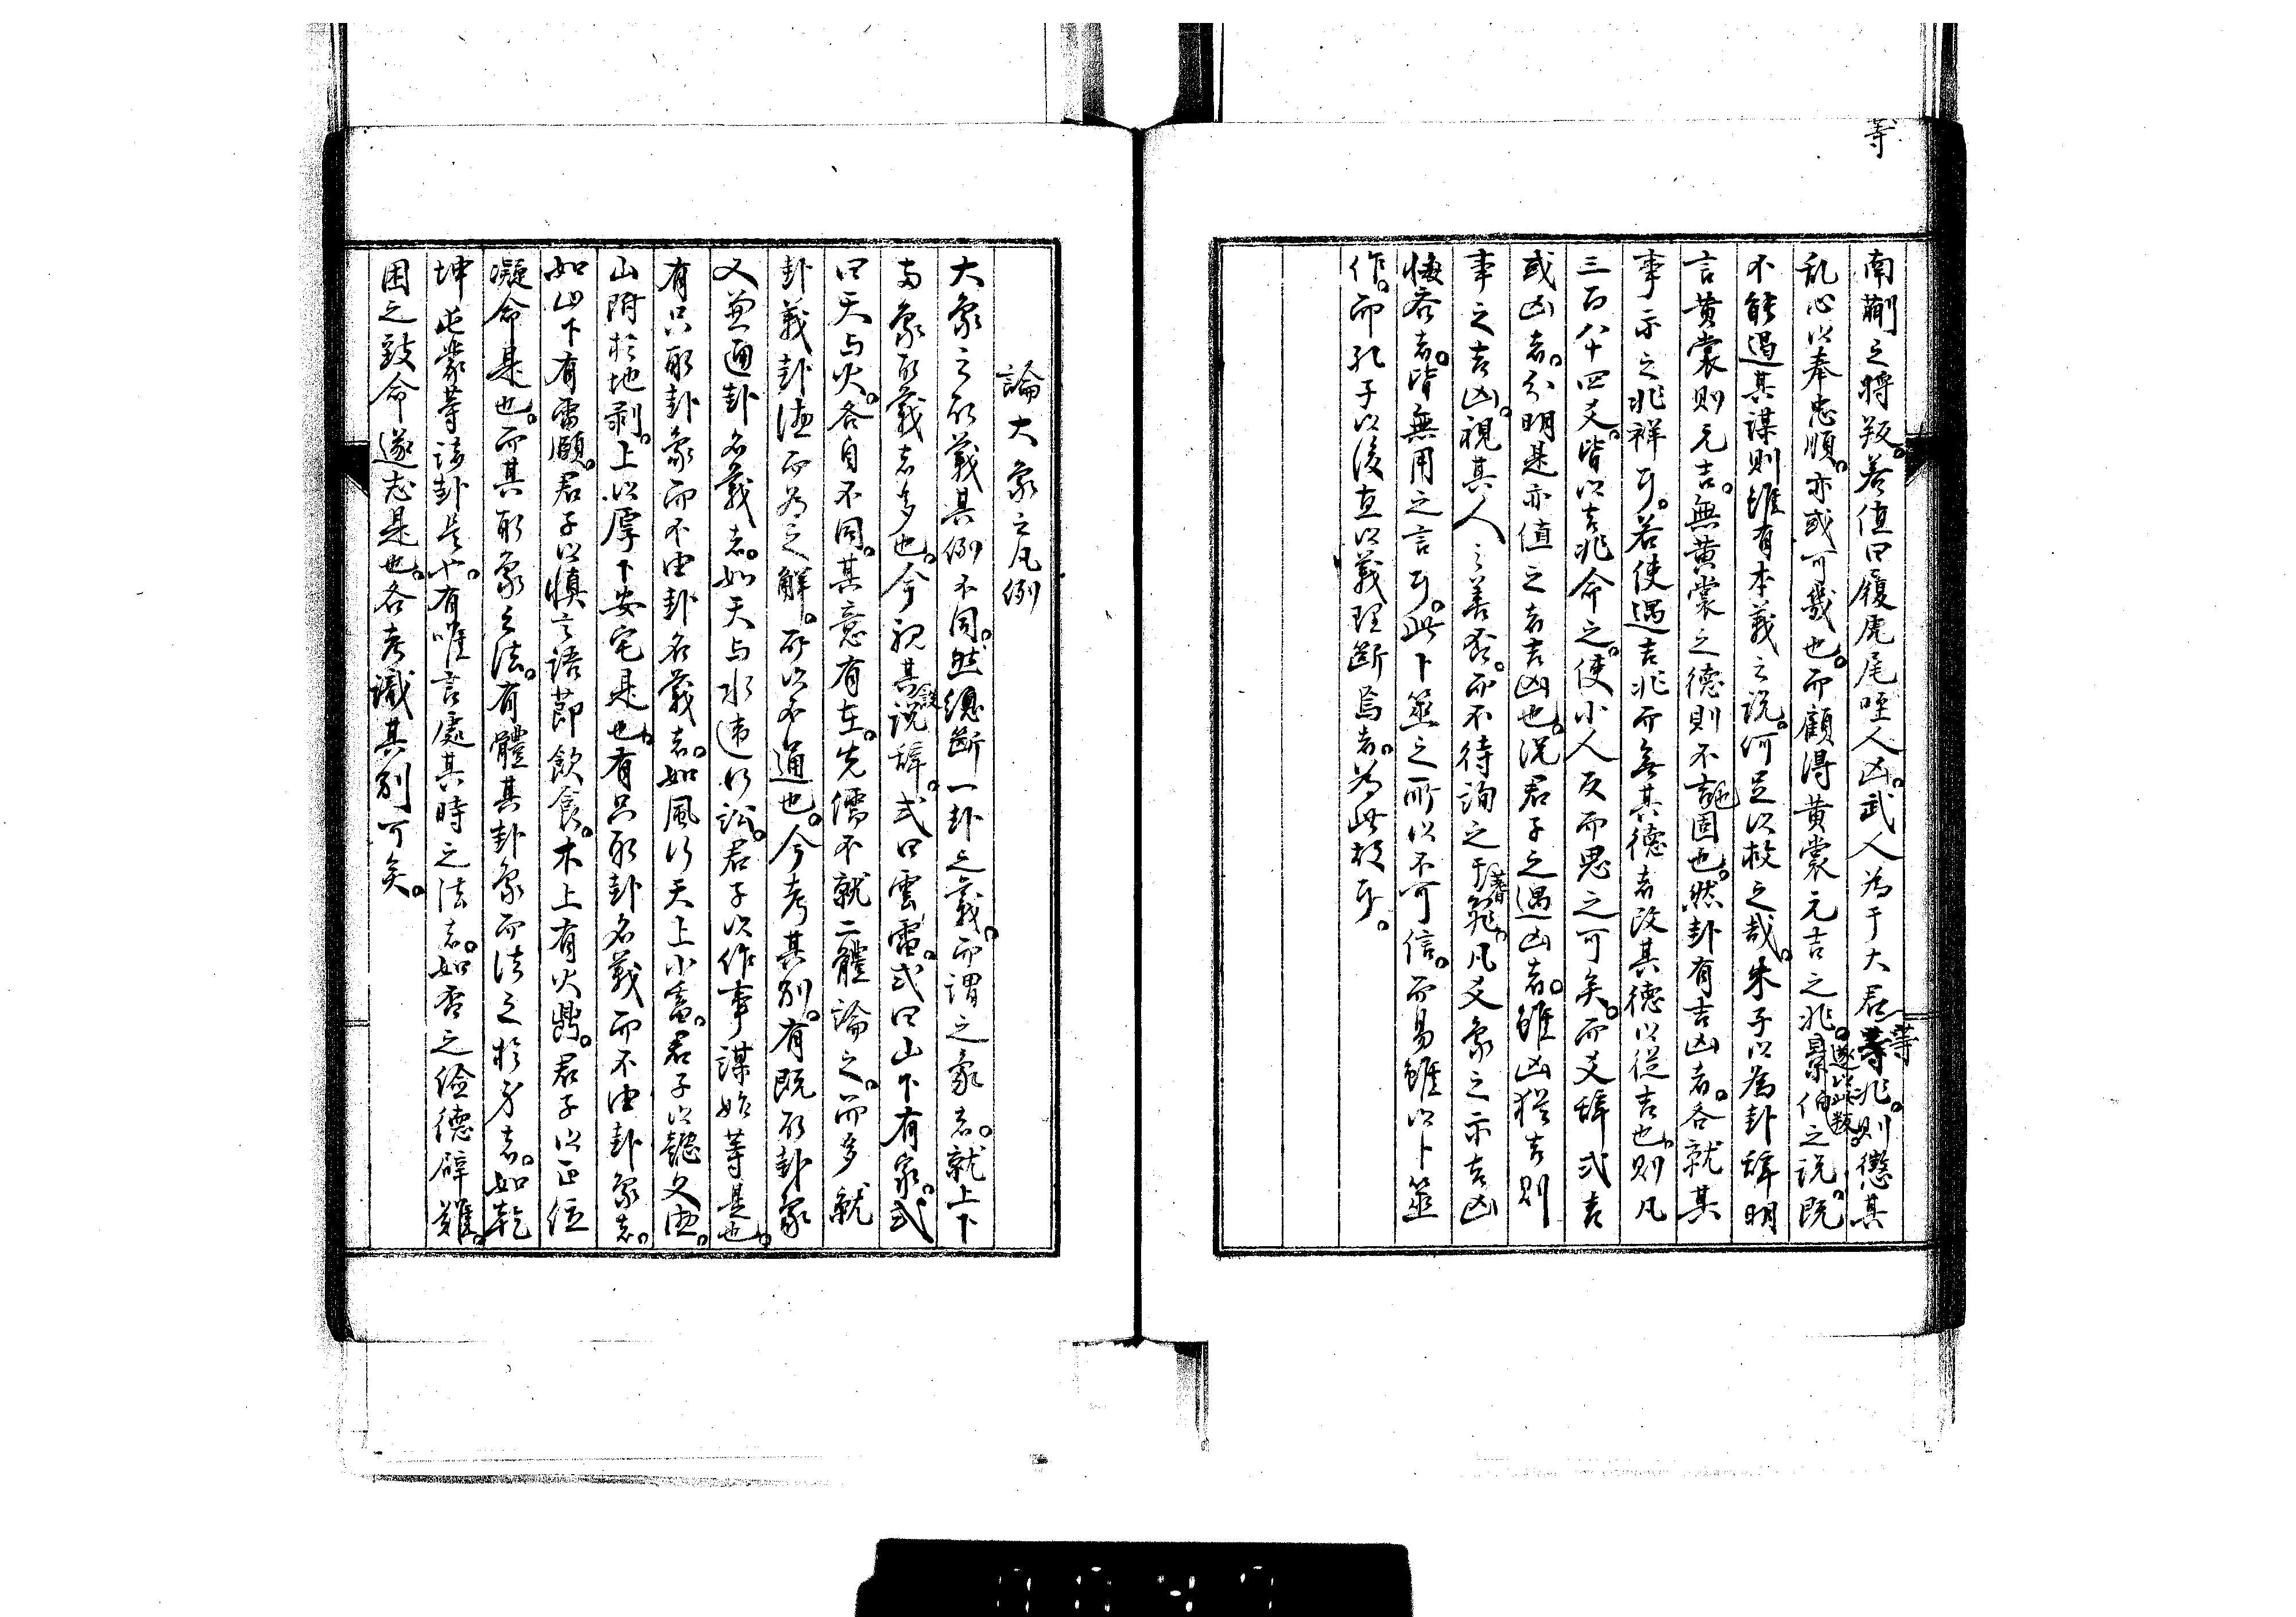 等
南蒯之將叛若值曰履虎尾咥人凶武人為于大君等兆則懲其
乱心以奉忠順亦或可幾也而顧得黄裳元吉之兆遂以此叛伯之説既
不能遏其謀則雖有本義之説何足以救之哉朱子以為卦辞明
言黄裳則元吉無黄裳之德則不吉也固也然卦有吉凶者各就其
事示之兆祥耳若使遇吉兆而無其德者改其德以従吉也則凡
三百八十四爻皆以吉兆命之使小人反而思之可矣而爻辞或吉
或凶者分明是亦値之者吉凶也況君子之遇凶者雖凶猶吉則
事之吉凶視其人之善否而不待詢之于蓍龜凡爻象之示吉凶
悔吝者皆無用之言耳此卜筮之所以不可信而易雖以卜筮
作而孔子以後直以義理断焉者為此故耳
論大象之凡例
大象之所義其例不同然總断一卦之義而謂之象者就上下
両象取義者多也今視其説辞或曰雲雷或曰山下有泉或
曰天与火各自不同其意有在先儒不就二體論之而多就
卦義卦德而為之解所以不通也今考其別有既取卦象
又兼通卦名義者如天与水違行訟君子以作事謀始等是也
有只取卦象而不由卦名義者如風行天上小畜君子以懿文德
山附於地剥上以厚下安宅是也有只取卦名義而不由卦象者
如山下有雷頤君子以慎言語節飲食木上有火鼎君子以正位
凝命是也而其取象之法有體其卦象而法之於身者如乾
坤屯蒙等諸卦是也有唯言處其時之法者如否之儉德辟難
困之致命遂志是也各考識其別可矣